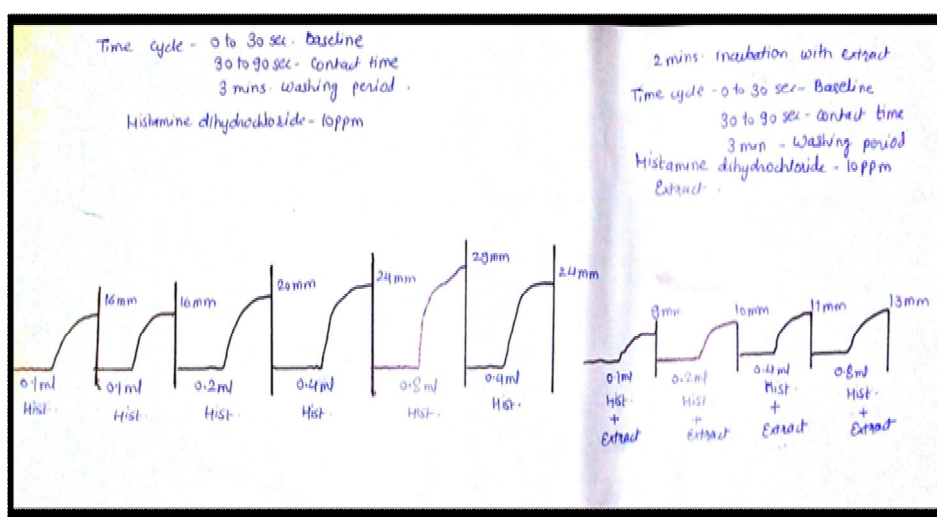 Time cycle - 0 to 30 sec. Baseline
30 to 90 sec - Contact time
3 mins. washing period.
Histamine dihydrochloride - 10ppm
2 mins. incubation with extract
Time cycle - 0 to 30 sec - Baseline
30 to 90 sec - contact time
3 min - Washing period
Histamine dihydrochloride - 10ppm
Extract.
16mm
16mm
20mm
24mm
29mm
24mm
9mm
10mm
11mm
13mm
0.1ml
Hist.
0.1ml
Hist.
0.2ml
Hist.
0.4ml
Hist.
0.8ml
Hist.
0.4ml
Hist.
0.1ml
Hist.
+
Extract
0.2ml
Hist
+
Extract
0.4ml
Hist.
+
Extract
0.8ml
Hist.
+
Extract